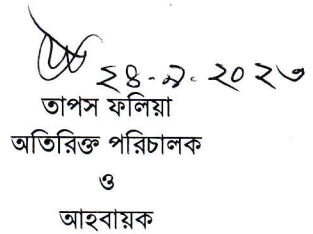 ২৪-৯-২০২৩
তাপস ফলিয়া
অতিরিক্ত পরিচালক
ও
আহবায়ক